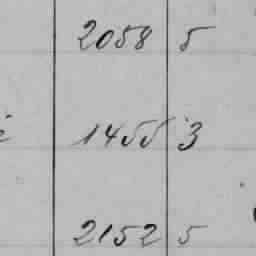 2058 5
1455 3
2152 5